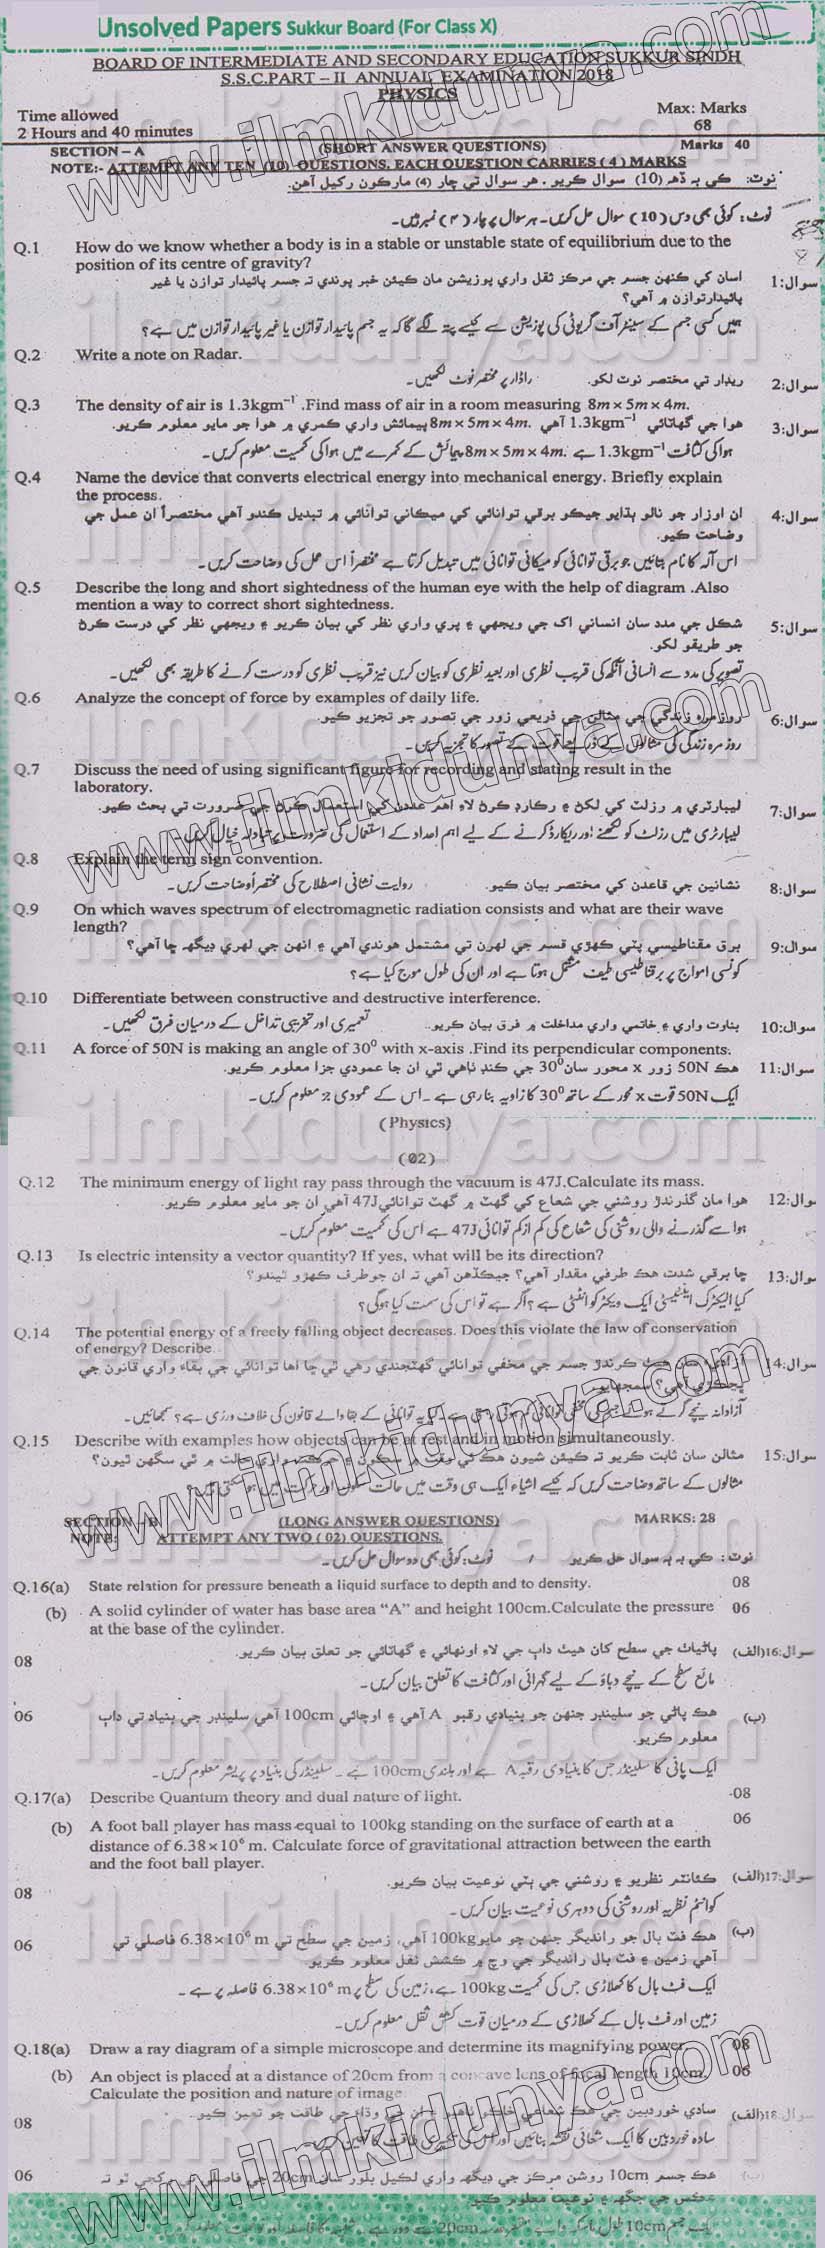 Unsolved Papers Sukkur Board (For Class X)
BOARD OF INTERMEDIATE AND SECONDARY EDUCATION SUKKUR SINDH
S.S.C.PART – II ANNUAL EXAMINATION 2018
PHYSICS
Time allowed
Max: Marks
2 Hours and 40 minutes
68
SECTION – A (SHORT ANSWER QUESTIONS) Marks 40
NOTE:- ATTEMPT ANY TEN (10) QUESTIONS. EACH QUESTION CARRIES ( 4 ) MARKS
نوٽ: ڪي به ڏهه (10) سوال ڪريو. هر سوال تي چار (4) مارڪون رکيل آهن.
نوٹ: کوئی بھی دس (10) سوال حل کریں۔ ہر سوال پر چار (۴) نمبر ہیں۔
Q.1 How do we know whether a body is in a stable or unstable state of equilibrium due to the
position of its centre of gravity?
سوال:1 اسان کي ڪنهن جسم جي مرڪز ثقل واري پوزيشن مان ڪيئن خبر پوندي ته جسم پائيدار توازن يا غير
پائيدار توازن ۾ آهي؟
ہمیں کسی جسم کے سینٹر آف گریوٹی کی پوزیشن سے کیسے پتہ لگے گا کہ یہ جسم پائیدار توازن یا غیر پائیدار توازن میں ہے؟
Q.2 Write a note on Radar.
سوال:2 ريڊار تي مختصر نوٽ لکو. راڈار پر مختصر نوٹ لکھیں۔
Q.3 The density of air is 1.3kgm⁻¹ .Find mass of air in a room measuring 8m × 5m × 4m.
سوال:3 هوا جي گهاٽائي 1.3kgm⁻¹ آهي 8m × 5m × 4m. پيمائش واري ڪمري ۾ هوا جو مايو معلوم ڪريو.
ہوا کی کثافت 1.3kgm⁻¹ ہے 8m × 5m × 4m. پیمائش کے کمرے میں ہوا کی کمیت معلوم کریں۔
Q.4 Name the device that converts electrical energy into mechanical energy. Briefly explain
the process.
سوال:4 ان اوزار جو نالو ٻڌايو جيڪو برقي توانائي کي ميڪاني توانائي ۾ تبديل ڪندو آهي مختصراً ان عمل جي
وضاحت ڪيو.
اس آلہ کا نام بتائیں جو برقی توانائی کو میکانی توانائی میں تبدیل کرتا ہے مختصراً اس عمل کی وضاحت کریں۔
Q.5 Describe the long and short sightedness of the human eye with the help of diagram .Also
mention a way to correct short sightedness.
سوال:5 شڪل جي مدد سان انساني اک جي ويجهي ۽ پري واري نظر کي بيان ڪريو ۽ ويجهي نظر کي درست ڪرڻ
جو طريقو لکو.
تصویر کی مدد سے انسانی آنکھ کی قریب نظری اور بعید نظری کو بیان کریں نیز قریب نظری کو درست کرنے کا طریقہ بھی لکھیں۔
Q.6 Analyze the concept of force by examples of daily life.
سوال:6 روزمره زندگي جي مثالن جي ذريعي زور جي تصور جو تجزيو ڪيو.
روز مرہ زندگی کی مثالوں کے ذریعے قوت کے تصور کا تجزیہ کریں۔
Q.7 Discuss the need of using significant figure for recording and stating result in the
laboratory.
سوال:7 ليبارٽري ۾ رزلٽ کي لکڻ ۽ رڪارڊ ڪرڻ لاءِ اهم عددن کي استعمال ڪرڻ جي ضرورت تي بحث ڪيو.
لیبارٹری میں رزلٹ کو لکھنے اور ریکارڈ کرنے کے لیے اہم اعداد کے استعمال کی ضرورت پر تبادلہ خیال کریں۔
Q.8 Explain the term sign convention.
سوال:8 نشانين جي قاعدن کي مختصر بيان ڪيو. روایت نشانی اصطلاح کی مختصراً وضاحت کریں۔
Q.9 On which waves spectrum of electromagnetic radiation consists and what are their wave
length?
سوال:9 برق مقناطيسي پٽي ڪهڙي قسم جي لهرن تي مشتمل هوندي آهي ۽ انهن جي لهري ڊيگهه ڇا آهي؟
کونسی امواج پر برقناطیسی طیف مشتمل ہوتا ہے اور ان کی طول موج کیا ہے؟
Q.10 Differentiate between constructive and destructive interference.
سوال:10 بناوت واري ۽ خاتمي واري مداخلت ۾ فرق بيان ڪريو.. تعمیری اور تخریبی تداخل کے درمیان فرق لکھیں۔
Q.11 A force of 50N is making an angle of 30⁰ with x-axis .Find its perpendicular components.
سوال:11 هڪ 50N زور x محور سان 30⁰ جي ڪنڊ ٺاهي ٿي ان جا عمودي جزا معلوم ڪريو.
ایک 50N قوت x محور کے ساتھ 30⁰ کا زاویہ بنا رہی ہے۔ اس کے عمودی جز معلوم کریں۔
(Physics)
(02)
Q.12 The minimum energy of light ray pass through the vacuum is 47J.Calculate its mass.
سوال:12 هوا مان گذرندڙ روشني جي شعاع کي گهٽ ۾ گهٽ توانائي 47J آهي ان جو مايو معلوم ڪريو.
ہوا سے گذرنے والی روشنی کی شعاع کی کم از کم توانائی 47J ہے اس کی کمیت معلوم کریں۔
Q.13 Is electric intensity a vector quantity? If yes, what will be its direction?
سوال:13 ڇا برقي شدت هڪ طرفي مقدار آهي؟ جيڪڏهن آهي ته ان جو طرف ڪهڙو ٿيندو؟
کیا الیکٹرک اینٹینسٹی ایک ویکٹر کوانٹٹی ہے؟ اگر ہے تو اس کی سمت کیا ہوگی؟
Q.14 The potential energy of a freely falling object decreases. Does this violate the law of conservation
of energy? Describe.
سوال:14 آزاديءَ سان هيٺ ڪرندڙ جسم جي مخفي توانائي گهٽجندي رهي ٿي ڇا اها توانائي جي بقاءَ واري قانون جي
ڀڃڪڙي آهي؟ سمجهايو.
آزادانہ نیچے گرتے ہوئے جسم کی مخفی توانائی کم ہوتی رہتی ہے۔ کیا یہ توانائی کے بقا والے قانون کی خلاف ورزی ہے؟ سمجھائیں۔
Q.15 Describe with examples how objects can be at rest and in motion simultaneously.
سوال:15 مثالن سان ثابت ڪريو ته ڪيئن شيون هڪ ئي وقت ۾ سڪون ۽ حرڪت واري حالت ۾ ٿي سگهن ٿيون؟
مثالوں کے ساتھ وضاحت کریں کہ کیسے اشیاء ایک ہی وقت میں حالت سکون اور حرکت میں ہو سکتی ہیں؟
SECTION – B (LONG ANSWER QUESTIONS) MARKS: 28
NOTE: ATTEMPT ANY TWO ( 02) QUESTIONS.
نوٽ: ڪي به ٻه سوال حل ڪريو / نوٹ: کوئی بھی دو سوال حل کریں۔
Q.16(a) State relation for pressure beneath a liquid surface to depth and to density. 08
(b) A solid cylinder of water has base area “A” and height 100cm.Calculate the pressure 06
at the base of the cylinder.
سوال:16(الف) پاڻياٺ جي سطح کان هيٺ داٻ جي لاءِ اونهائي ۽ گهاٽائي جو تعلق بيان ڪريو. 08
مائع سطح کے نیچے دباؤ کے لیے گہرائی اور کثافت کا تعلق بیان کریں۔
(ب) هڪ پاڻي جو سلينڊر جنهن جو بنيادي رقبو A آهي ۽ اوچائي 100cm آهي سلينڊر جي بنياد تي داٻ 06
معلوم ڪريو.
ایک پانی کا سلینڈر جس کا بنیادی رقبہ A ہے اور بلندی 100cm ہے۔ سلینڈر کی بنیاد پر پریشر معلوم کریں۔
Q.17(a) Describe Quantum theory and dual nature of light. 08
(b) A foot ball player has mass equal to 100kg standing on the surface of earth at a 06
distance of 6.38×10⁶ m. Calculate force of gravitational attraction between the earth
and the foot ball player.
سوال:17(الف) ڪئانٽم نظريو ۽ روشني جي ٻٽي نوعيت بيان ڪريو. 08
کوانٹم نظریہ اور روشنی کی دوہری نوعیت بیان کریں۔
(ب) هڪ فٽ بال جو رانديگر جنهن جو مايو 100kg آهي، زمين جي سطح تي 6.38×10⁶ m فاصلي تي 06
آهي زمين ۽ فٽ بال رانديگر جي وچ ۾ ڪشش ثقل معلوم ڪريو
ایک فٹ بال کا کھلاڑی جس کی کمیت 100kg ہے، زمین کی سطح پر 6.38×10⁶ m فاصلہ پر ہے۔
زمین اور فٹ بال کے کھلاڑی کے درمیان قوت کشش ثقل معلوم کریں۔
Q.18(a) Draw a ray diagram of a simple microscope and determine its magnifying power. 08
(b) An object is placed at a distance of 20cm from a concave lens of focal length 10cm. 06
Calculate the position and nature of image.
سوال:18(الف) سادي خوردبين جي هڪ شعاعي خاڪو ٺاهيو ۽ ان جي وڌاءَ جي طاقت جو تعين ڪيو. 08
سادہ خوردبین کا ایک شعاعی نقشہ بنائیں اور اس کی تکبیری طاقت کا تعین کریں۔
هڪ جسم 10cm روشن مرڪز جي ڊيگهه واري لڪيل بلور سان 20cm جي فاصلي تي 06
عڪس جي جڳهه ۽ نوعيت معلوم ڪيو.
www.ilmkidunya.com
ilmkidunya.com